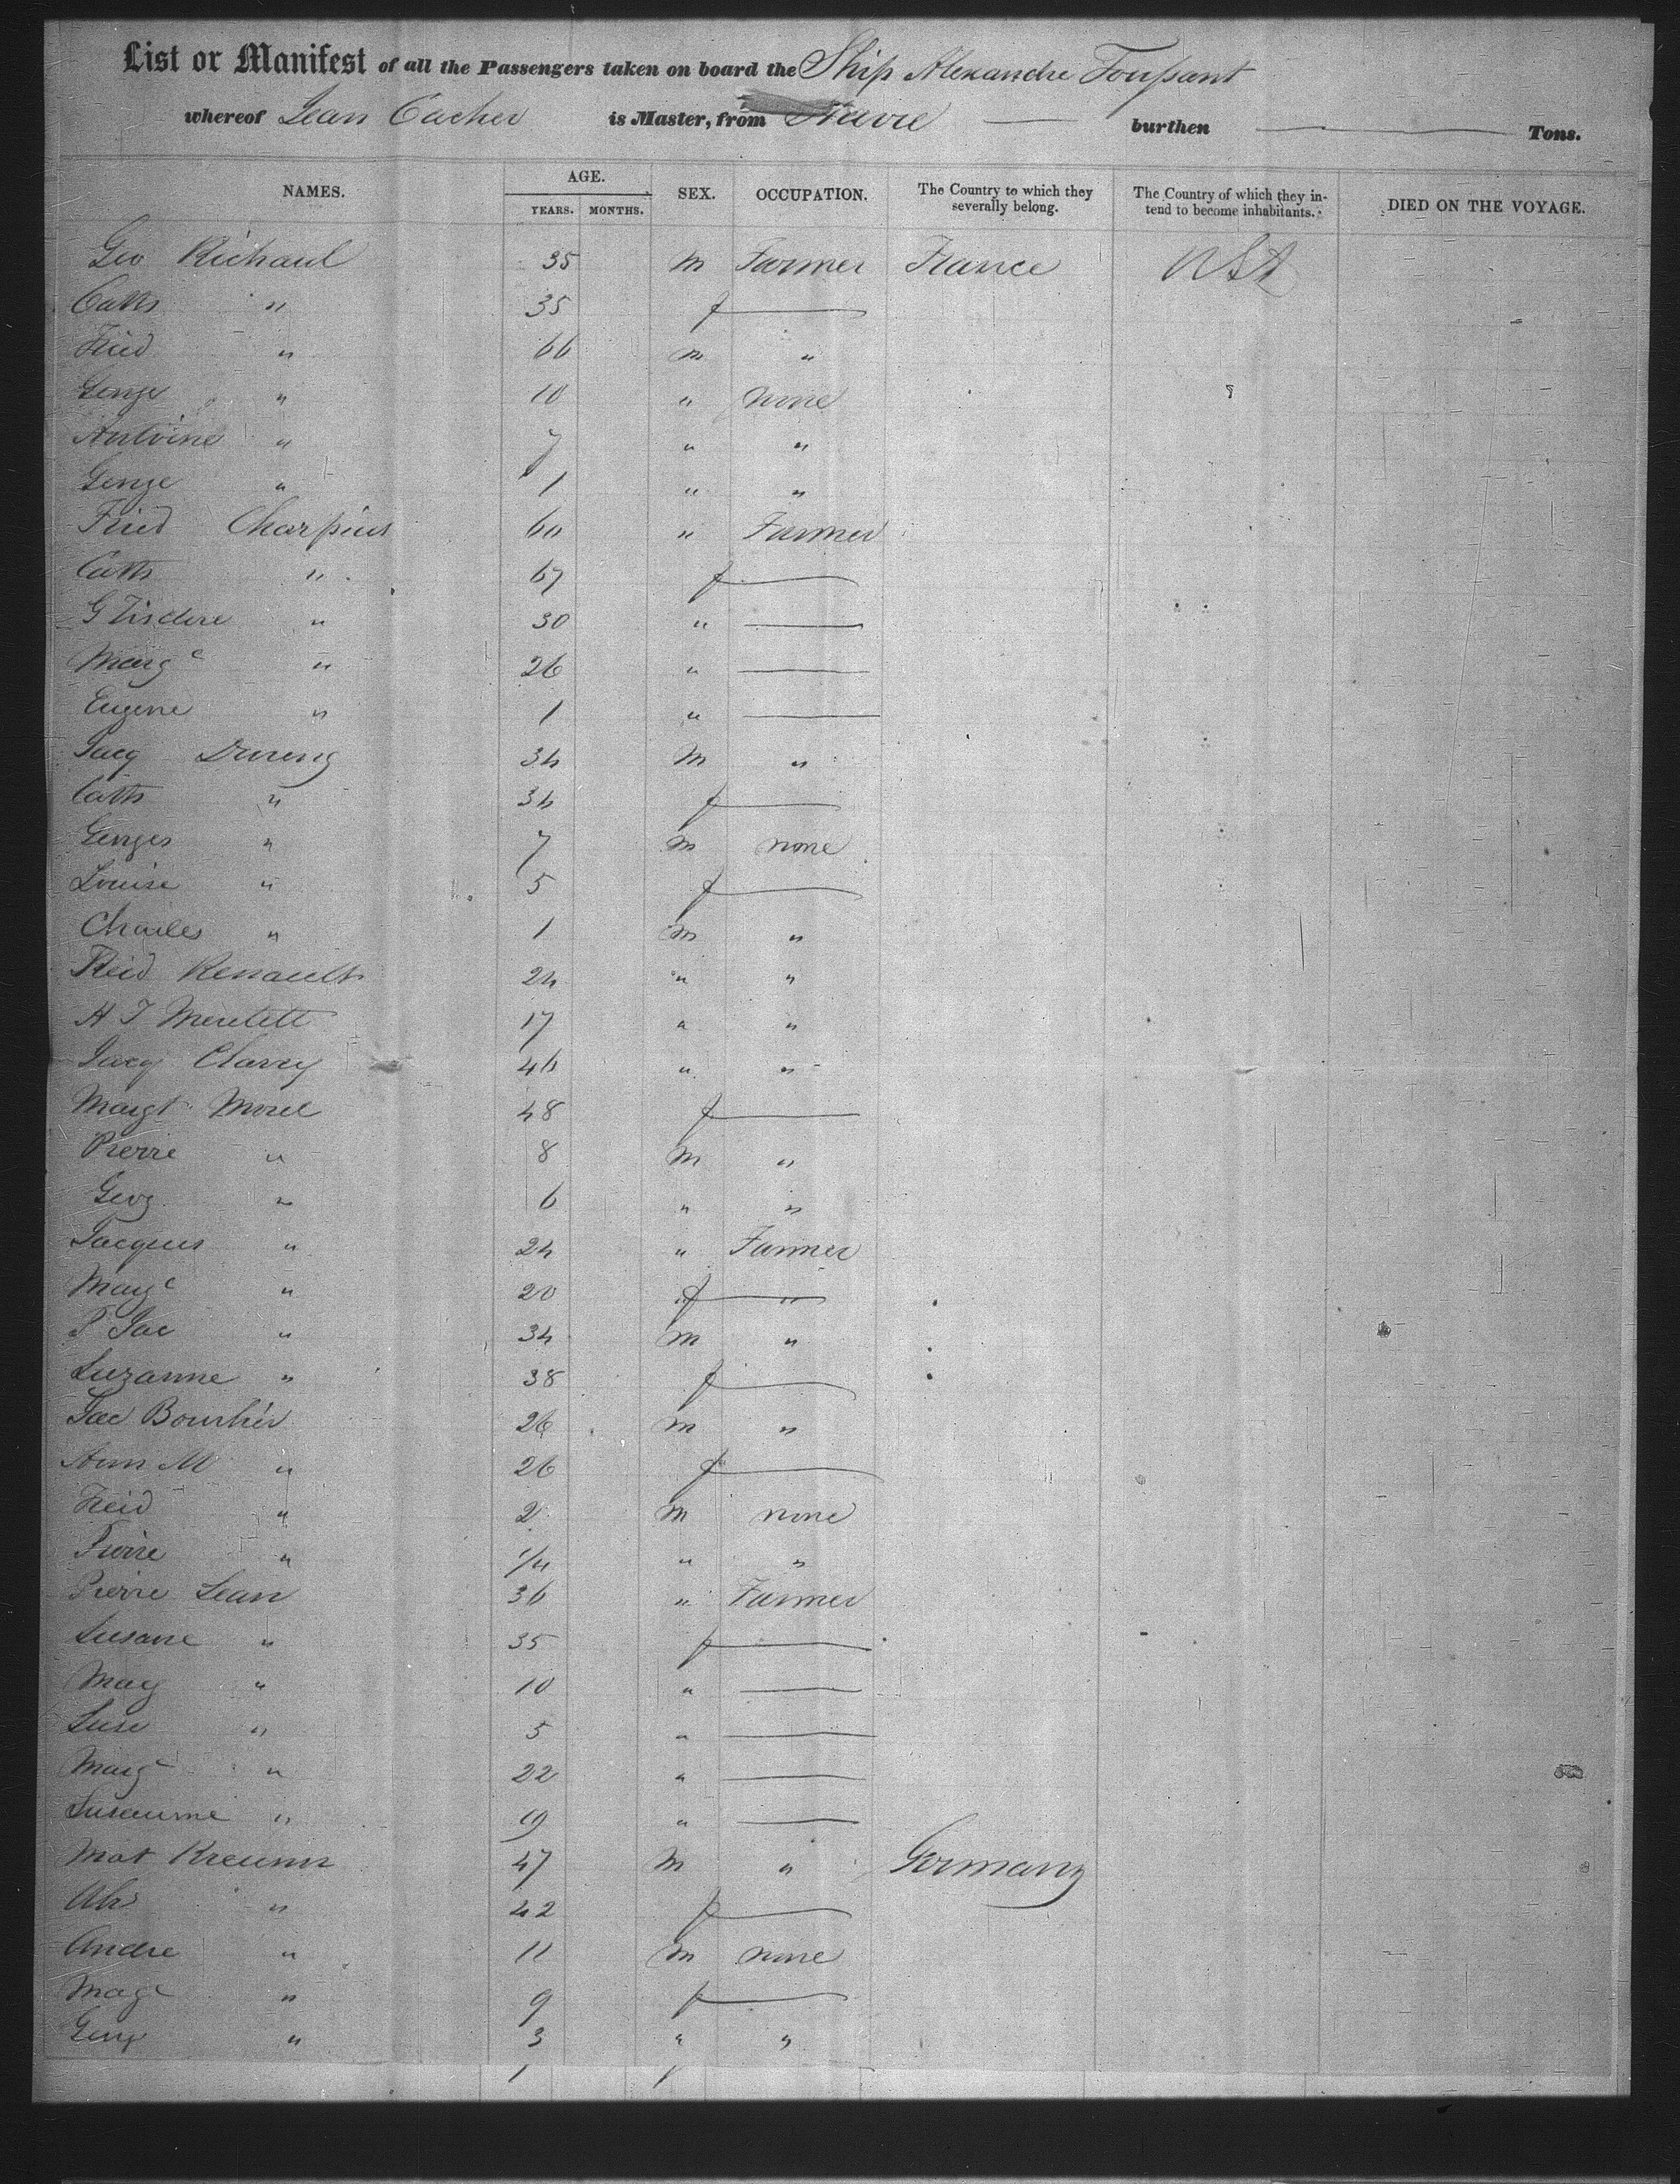 List or Manifest of all the Passengers taken on board the Ship Alexandre Toussant
whereof Jean Cacher is Master, from Havre — burthen — Tons.
NAMES. AGE. YEARS. MONTHS. SEX. OCCUPATION. The Country to which they severally belong. The Country of which they intend to become inhabitants. DIED ON THE VOYAGE.
Geo Richard 35 m Farmer France USA
Cath " 35 f —
Fried " 66 m "
George " 10 " none
Antoine " 7 " "
George " 1 " "
Fried Charpiot 60 " Farmer
Cath " 67 f —
G " 30 " —
Marg " 26 " —
Eugene " 1 " —
Jacq Dureng 34 M "
Cath " 36 f —
Georges " 7 m none
Louise " 5 f —
Charles " 1 m "
Fried Renault 24 " "
H J 17 " "
Jacq Clarey 46 " "
Margt Morel 48 f —
Pierre " 8 m "
Geog " 6 " "
Jacques " 24 " Farmer
Marg " 20 f "
P Jac " 34 m "
Suzanne " 38 f —
Jac Bourhir 26 m "
Ann M " 26 f —
Fried " 2 m none
Pierre " 1/4 " "
Pierre Jean 36 " Farmer
Susane " 35 f —
Marg " 10 " —
Suse " 5 " —
Marg " 22 " —
Susanne " 19 " —
Mat 47 M " Germany
" 42 f —
Andre " 11 m none
Marg " 9 f —
Georg " 3 " "